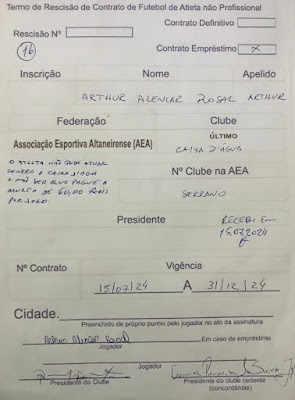 Termo de Rescisão de Contrato de Futebol de Atleta não Profissional
Contrato Definitivo
Rescisão Nº
16
Contrato Empréstimo X
Inscrição Nome Apelido
ARTHUR ALENCAR ROSAL ARTHUR
Federação Clube
ÚLTIMO
Associação Esportiva Altaneirense (AEA) CAIXA D'ÁGUA
O ATLETA NÃO PODE ATUAR
CONTRA O CAIXA D'ÁGUA
A NÃO SER QUE PAGUE A
MULTA DE 60,00 REAIS
POR JOGO.
Nº Clube na AEA
SERRANO
Presidente RECEBI EM
15.07.2024
Nº Contrato Vigência
15/07/24 A 31/12/24
Cidade.
Preenchido de próprio punho pelo jogador no ato da assinatura
Em caso de empréstimo
Jogador
Jogador
Presidente do Clube
Presidente do clube cedente
(concordância)